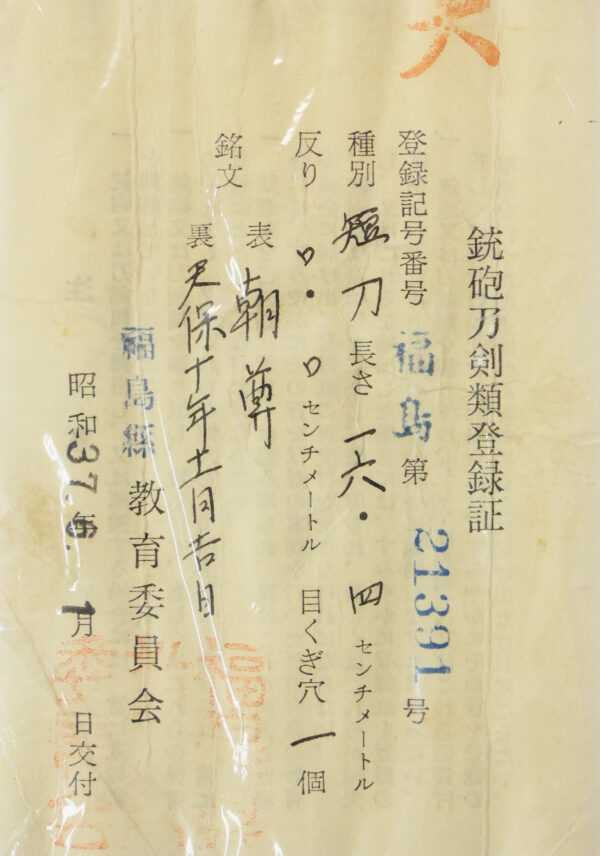 銃砲刀剣類登録証
登録記号番号 福島 第 21391 号
種別 短刀 長さ 一六・四 センチメートル
反り 〇・〇 センチメートル 目くぎ穴 一 個
銘文 表 朝尊
裏 天保十年十一月吉日
福島縣 教育委員会
昭和37.年6.1月 日交付